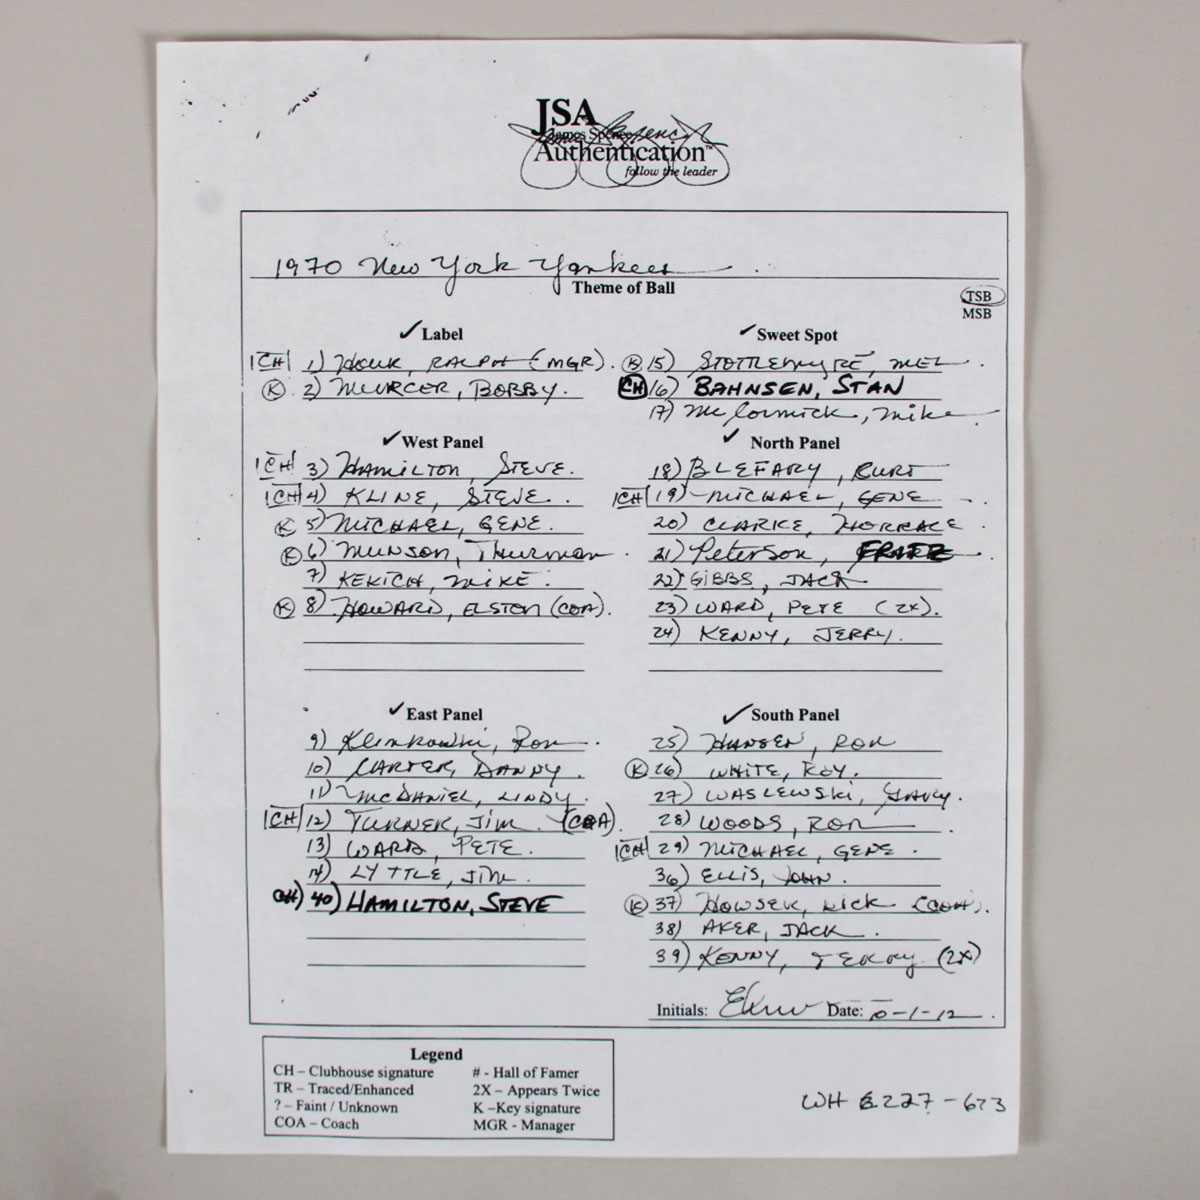 JSA
James Spence
Authentication™
follow the leader
1970 New York Yankees
Theme of Ball
TSB
MSB
✓ Label
CH 1) HOUK, RALPH (MGR).
K 2) MURCER, BOBBY.
✓ Sweet Spot
K 15) STOTTLEMYRE, MEL
CH 16) BAHNSEN, STAN
17) McCormick, Mike
✓ West Panel
CH 3) HAMILTON, STEVE.
CH 4) KLINE, STEVE.
K 5) MICHAEL, GENE.
K 6) MUNSON, Thurman
7) KEKICH, MIKE.
K 8) HOWARD, ELSTON (COA).
✓ North Panel
18) BLEFARY, CURT
CH 19) MICHAEL, GENE
20) CLARKE, HORRACE
21) Peterson, FRITZ
22) GIBBS, JACK
23) WARD, PETE (2X).
24) KENNY, JERRY.
✓ East Panel
9) Klimkowski, Ron
10) CARTER, DANNY.
11) McDANIEL, LINDY.
CH 12) TURNER, JIM. (COA).
13) WARD, PETE.
14) LYTTLE, JIM.
CH) 40) HAMILTON, STEVE
✓ South Panel
25) HANSEN, RON
K 26) WHITE, ROY.
27) WASLEWSKI, GARY.
28) WOODS, RON
CH 29) MICHAEL, GENE.
36) ELLIS, JOHN.
K 37) HOWSER, DICK (COA).
38) AKER, JACK.
39) KENNY, JERRY (2X)
Initials: Date: 10-1-12.
Legend
CH – Clubhouse signature
TR – Traced/Enhanced
? – Faint / Unknown
COA – Coach
# - Hall of Famer
2X – Appears Twice
K –Key signature
MGR - Manager
WH 227-673